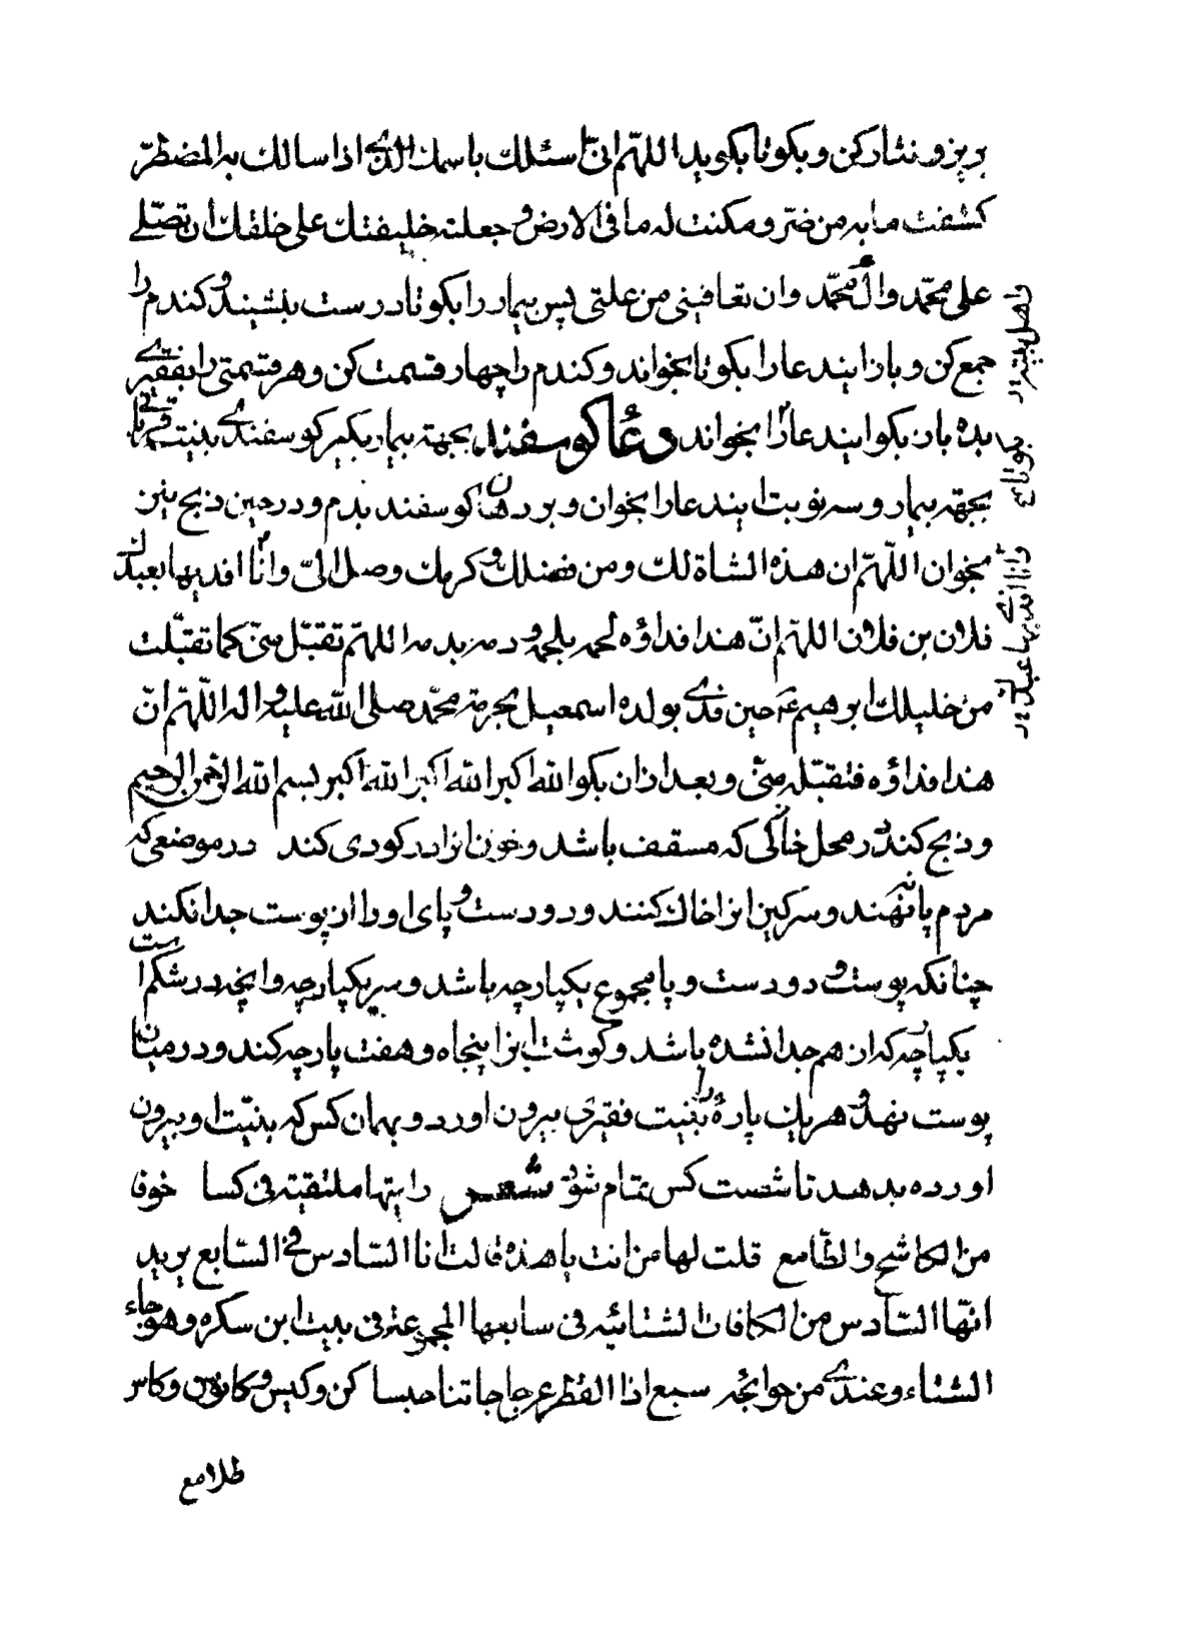 بریز و نثار کن و بکو تا بکوید اللهمّ انّی اسئلک باسمک الذی اذا سالک به المضطرّ
کشفت ما به من ضرّ و مکنت له ما فی الارض و جعلته خلیفتک علی خلقک ان تصلّی
علی محمّد وال محمّد وان تعافینی من علتی پس بیمار را بکو تا درست بنشیند و کندم را
جمع کن و باز ایندعا را بکو تا بخواند و کندم را چهار قسمت کن و هر قسمتی را بفقیری
بده باز بکو ایندعا را بخواند دعا کوسفند بجهته بیمار بکیر کوسفندی بنیت قربانی
بجهته بیمار و سه نوبت ایندعا را بخوان و بر دهان کوسفند بدم و در حین ذبح نیز
بخوان اللّهمّ ان هذه الشاة لک و من فضلک و کرمک وصل الیّ وانّا افدیها بعبدک
فلان بن فلان اللهمّ انّ هذا فداؤه لحمه بلحمه و دمه بدمه اللهمّ تقبّل منّی کما تقبّلت
من خلیلک ابرهیم حین فدی بولده اسمعیل بحرمة محمّد صلی الله علیه واله اللّهمّ انّ
هذا فداؤه فتقبّله منّی و بعد اذان بکو الله اکبر الله اکبر الله اکبر بسم الله الرحمن الرحیم
و ذبح کند در محل خاکی که مسقف باشد و خون انرا در کودی کند در موضعی که
مردم پا ننهند و سرکین انرا خاک کنند و دو دست و پای او را از پوست جدا نکند
چنانکه پوست و دو دست و پا مجموع یکپارچه باشد و سر یکپارچه وانچه در شکم است
یکپارچه که از هم جدا نشده باشد و کوشت انرا پنجاه و هفت پارچه کند و در میان
پوست نهد و هر یک پارهٔ را بنیت فقیری بیرون اورد و بهمان کس که بنیّت او بیرون
اورده بدهد تا شصت کس تمام شود شعر رایتها ملتقیته فی کسا خوفا
من الکاشح والطّامع قلت لها من انت یا هذه قالت انا السّادس فی السّابع یرید
انّها السّادس من الکافات الشتائیه فی سابعها المجموعة فی بیت ابن سکره و هو جاء
الشتاء و عندی من حوایجه سبع اذا القطر عن حاجاتنا حبسا کن و کیس و کانون و کاس
طلامع